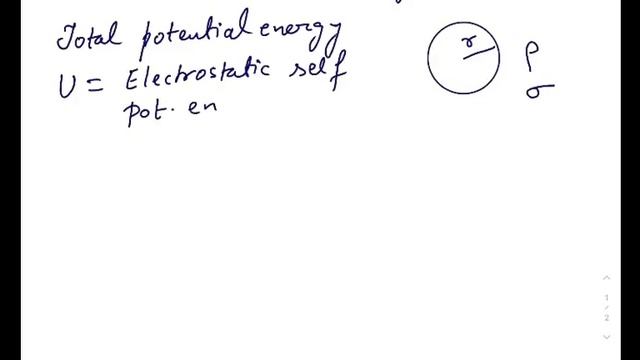 Total potential energy
U = Electrostatic self
pot. en
r
ρ
σ
1
/
2